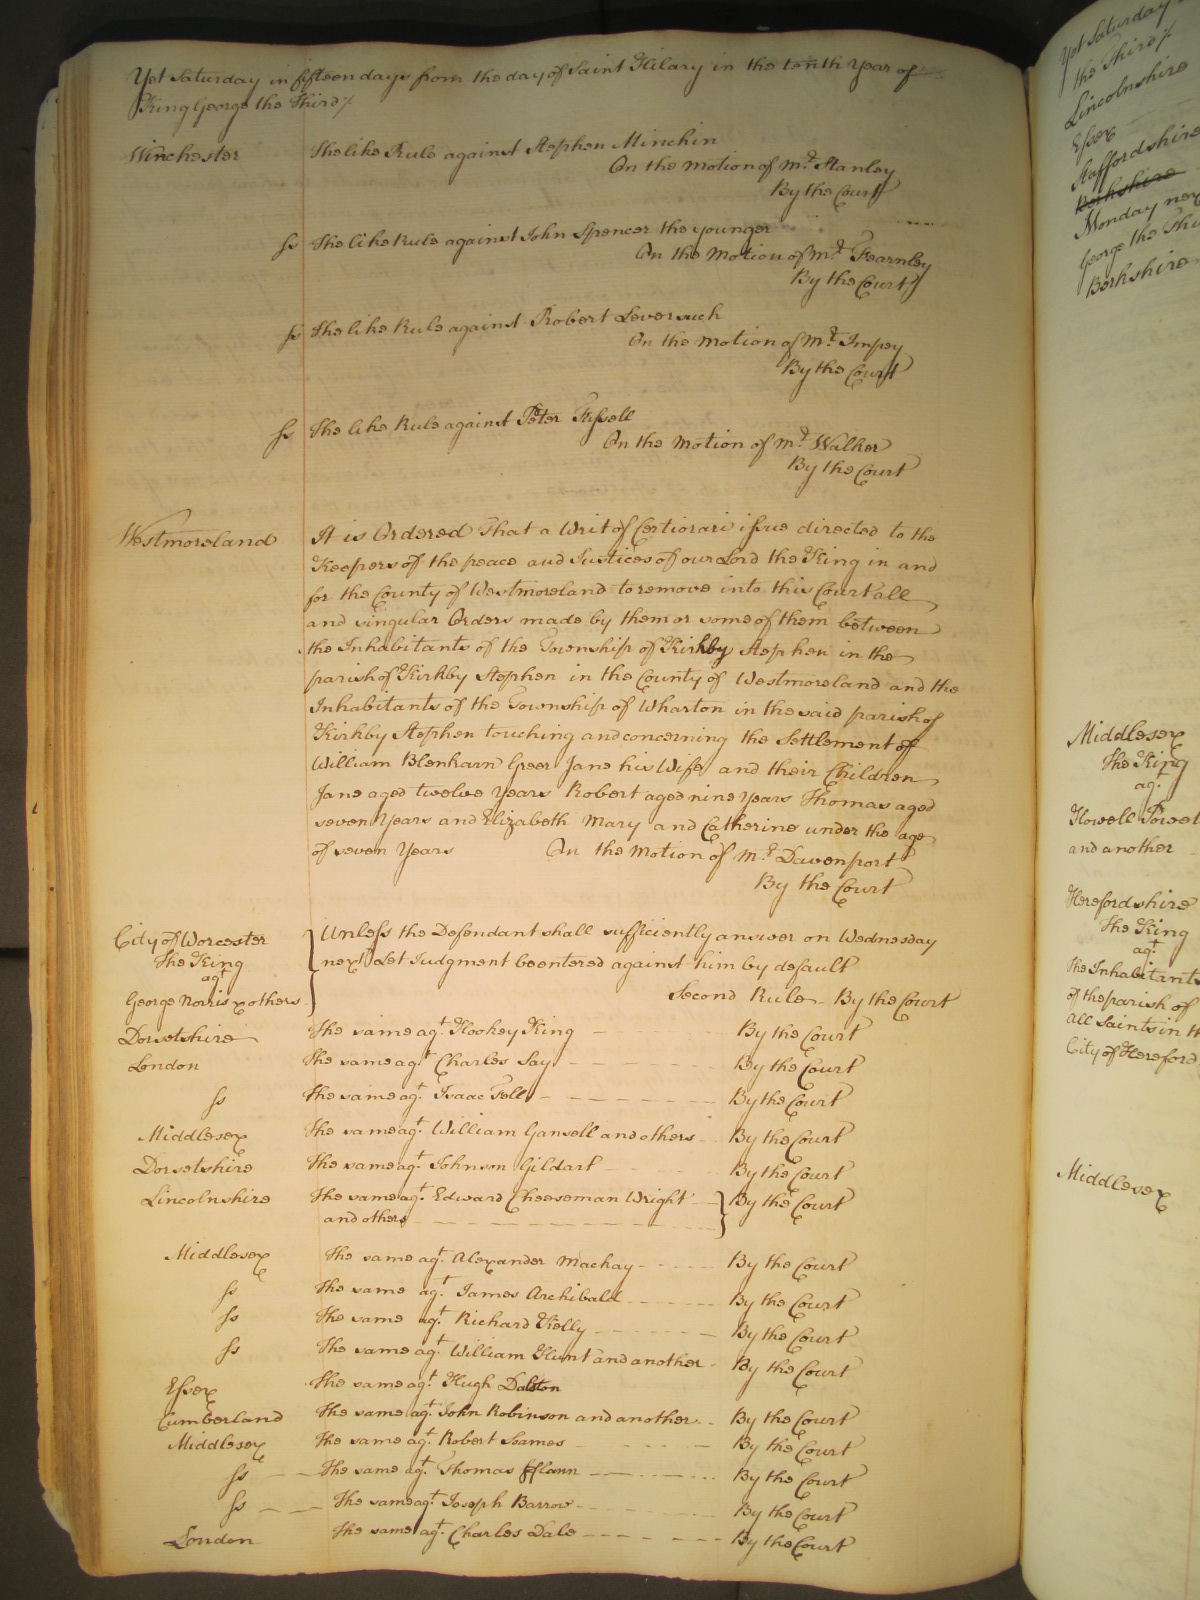 Yet Saturday in fifteen days from the day of Saint Hilary in the tenth Year of
King George the Third
Winchester The like Rule against Stephen Minchin
On the Motion of Mr. Stanley
By the Court
ss The like Rule against John Spencer the younger
On the Motion of Mr. Fearnley
By the Court
ss The like Rule against Robert Leversuch
On the Motion of Mr. Impey
By the Court
ss The like Rule against Peter Fussell
On the Motion of Mr. Walker
By the Court
Westmoreland It is Ordered That a Writ of Certiorari issue directed to the
Keepers of the peace and Justices of our Lord the King in and
for the County of Westmoreland to remove into this Court all
and singular Orders made by them or some of them between
the Inhabitants of the Township of Kirkby Stephen in the
parish of Kirkby Stephen in the County of Westmoreland and the
Inhabitants of the Township of Wharton in the said parish of
Kirkby Stephen touching and concerning the Settlement of
William Blenkarn Greer Jane his Wife and their Children
Jane aged twelve Years Robert aged nine Years Thomas aged
seven Years and Elizabeth Mary and Catherine under the age
of seven Years On the Motion of Mr. Davenport
By the Court
City of Worcester
The King
agt
George Norris & others
Unless the Defendant shall sufficiently answer on Wednesday
next Let Judgment be entered against him by default
Second Rule By the Court
Dorsetshire The same agt. Hookey King By the Court
London The same agt Charles Say By the Court
ss The same agt. Isaac Fell By the Court
Middlesex The same agt. William Gansell and others By the Court
Dorsetshire The same agt. Johnson Gildart By the Court
Lincolnshire The same agt. Edward Cheeseman Wright By the Court
and others
Middlesex The same agt. Alexander Mackay By the Court
ss The same agt. James Archibald By the Court
ss The same agt. Richard Kelly By the Court
ss The same agt. William Hunt and another By the Court
Essex The same agt. Hugh Dalston
Cumberland The same agt. John Robinson and another By the Court
Middlesex The same agt. Robert Soames By the Court
ss The same agt. Thomas fflann By the Court
ss The same agt. Joseph Barrow By the Court
London The same agt. Charles Dale By the Court
Yet Saturday
the Third
Lincolnshire
Essex
Staffordshire
Berkshire
Monday nex
George the Thi
Berkshire
Middlesex
The King
agt.
Howell Powel
and another
Herefordshire
The King
agt.
The Inhabitants
of the parish of
All Saints in th
City of Hereford
Middlesex